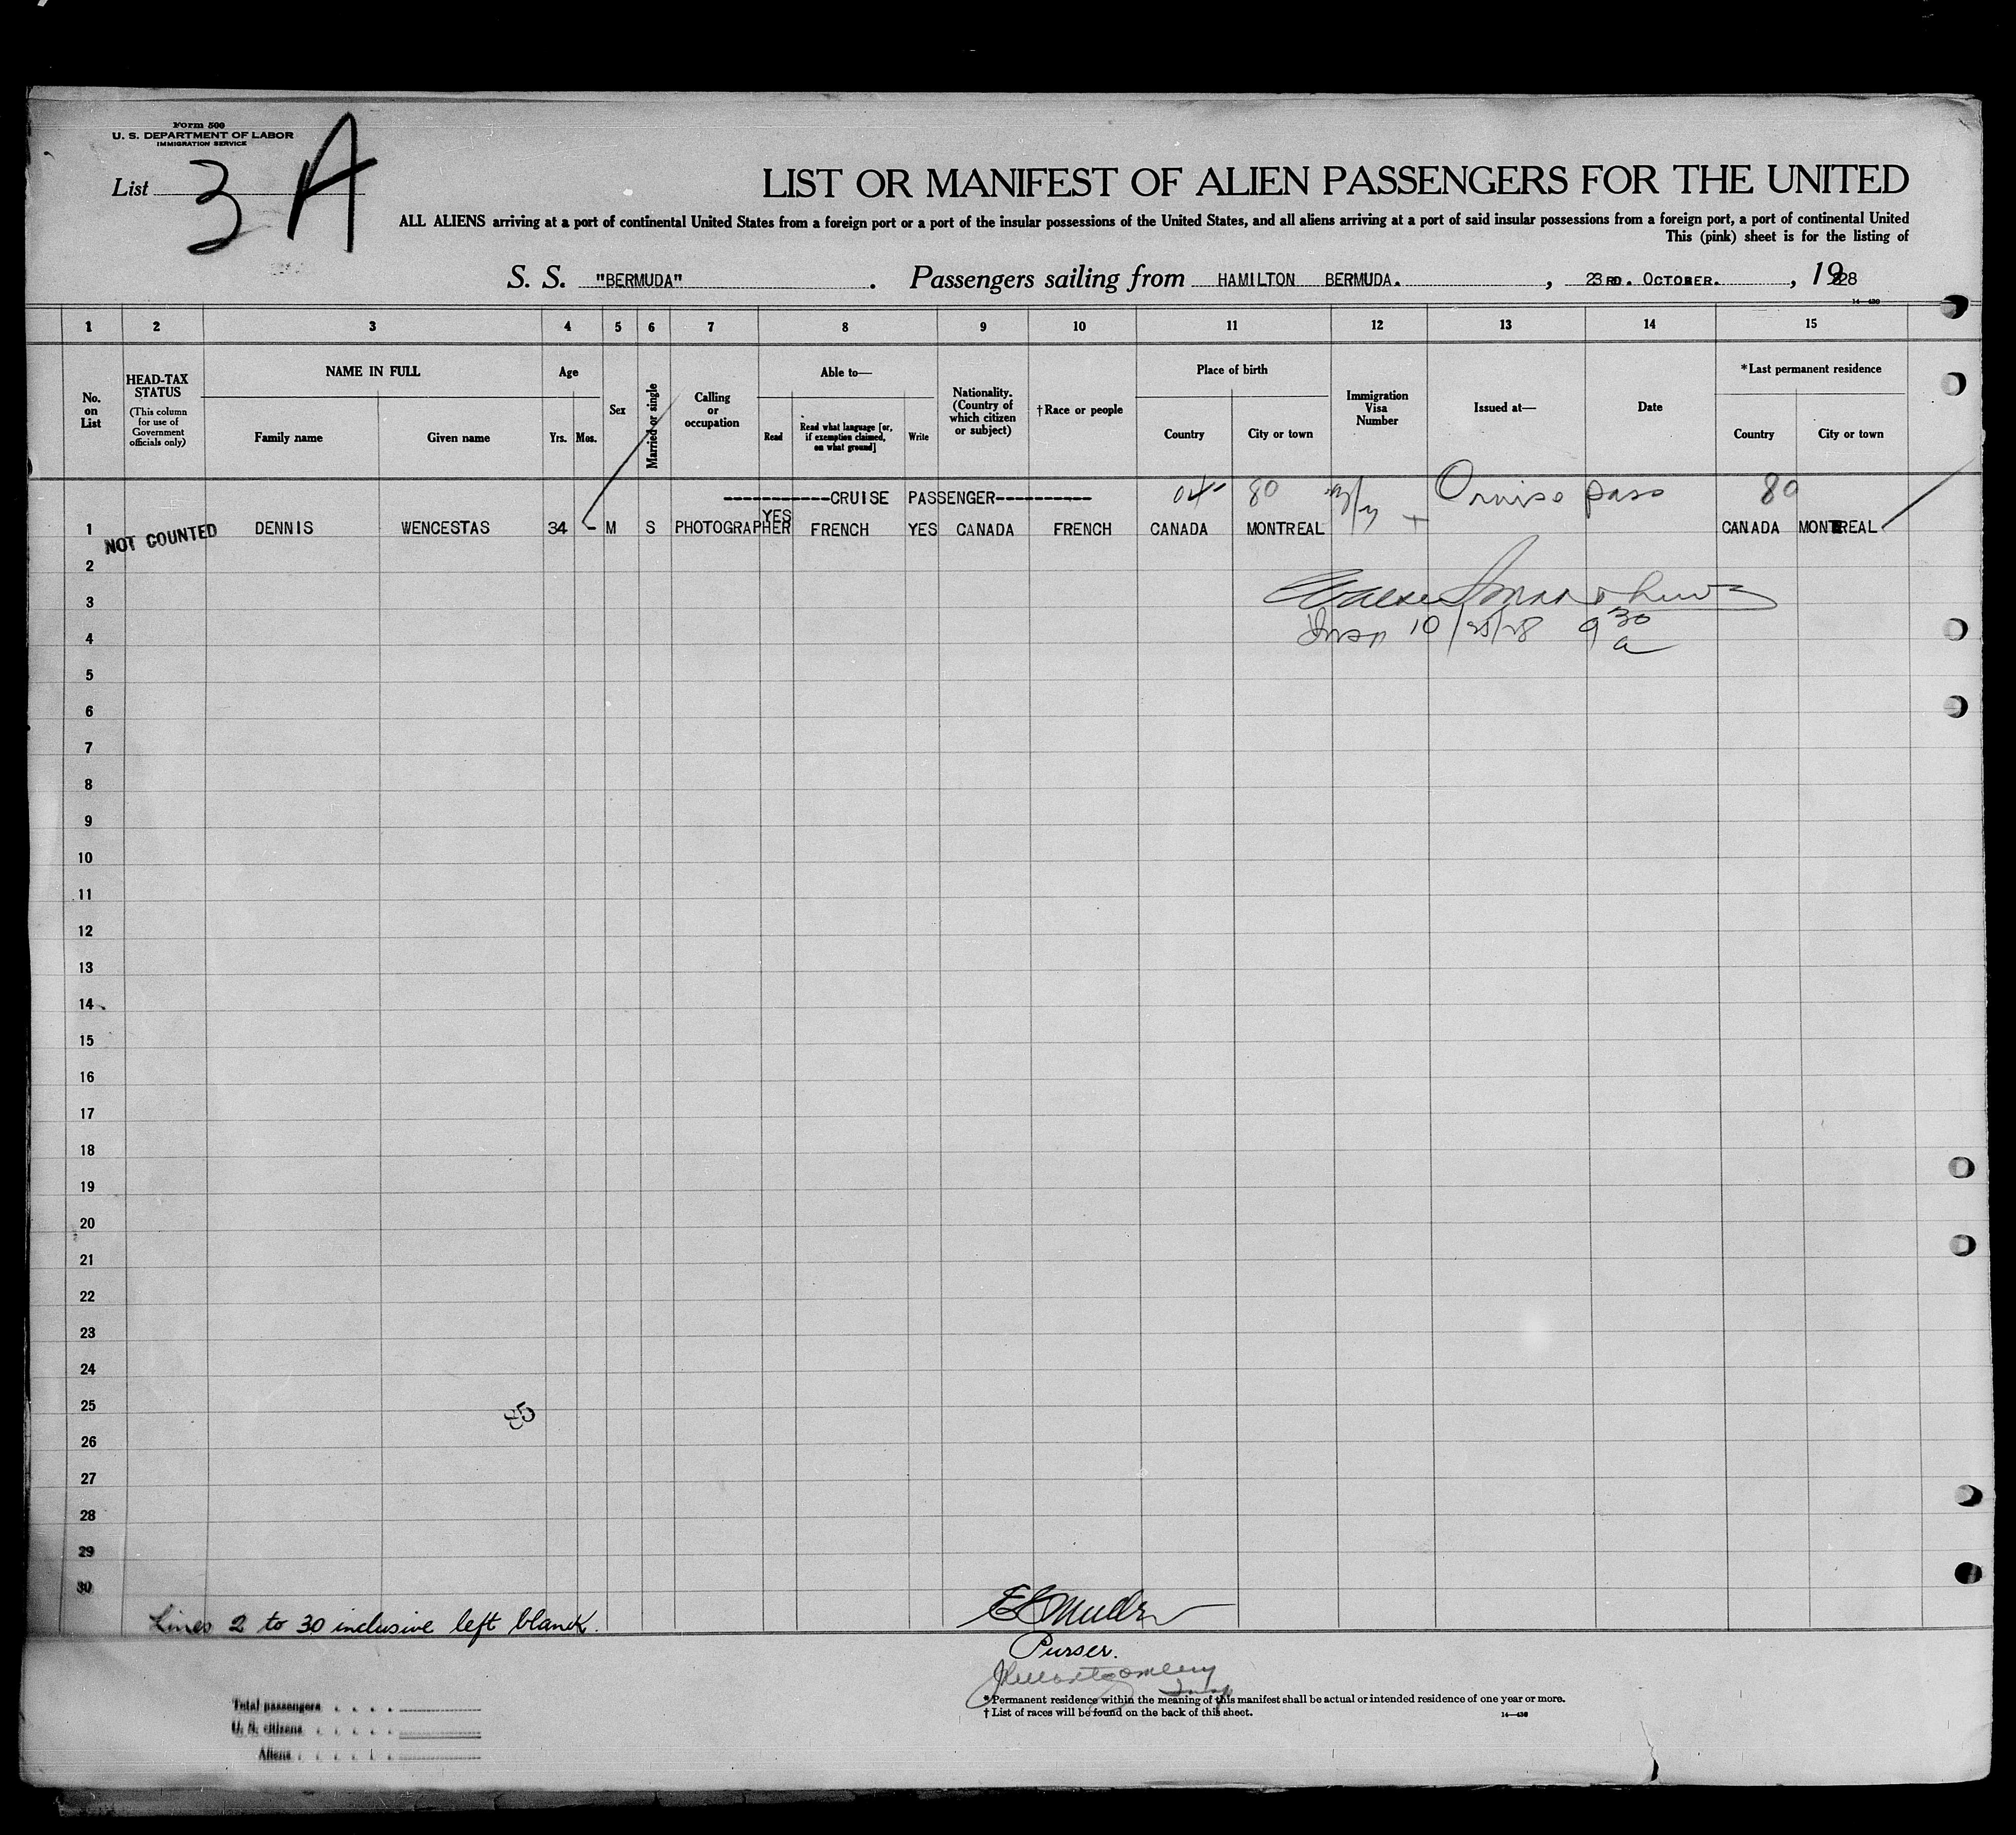 Form 500
U. S. DEPARTMENT OF LABOR
IMMIGRATION SERVICE
List 3 A
LIST OR MANIFEST OF ALIEN PASSENGERS FOR THE UNITED
ALL ALIENS arriving at a port of continental United States from a foreign port or a port of the insular possessions of the United States, and all aliens arriving at a port of said insular possessions from a foreign port, a port of continental United
This (pink) sheet is for the listing of
S. S. "BERMUDA". Passengers sailing from HAMILTON BERMUDA. , 23RD. OCTOBER. , 1928
14—430
1 2 3 4 5 6 7 8 9 10 11 12 13 14 15
No. on List
HEAD-TAX STATUS (This column for use of Government officials only)
NAME IN FULL
Family name Given name
Age
Yrs. Mos.
Sex
Married or single
Calling or occupation
Able to—
Read Read what language [or, if exemption claimed, on what ground] Write
Nationality. (Country of which citizen or subject)
†Race or people
Place of birth
Country City or town
Immigration Visa Number
Issued at—
Date
*Last permanent residence
Country City or town
-----------CRUISE PASSENGER---------- 80 Cruise pass 80
1 NOT COUNTED DENNIS WENCESTAS 34 - M S PHOTOGRAPHER YES FRENCH YES CANADA FRENCH CANADA MONTREAL CANADA MONTREAL
2
3
4 Insp 10/25/28 9 30 a
5
6
7
8
9
10
11
12
13
14
15
16
17
18
19
20
21
22
23
24
25
26
27
28
29
30
Lines 2 to 30 inclusive left blank.
Purser.
JR Montgomery
Insp
Total passengers
U. S. citizens
Aliens
*Permanent residence within the meaning of this manifest shall be actual or intended residence of one year or more.
†List of races will be found on the back of this sheet.
14—430